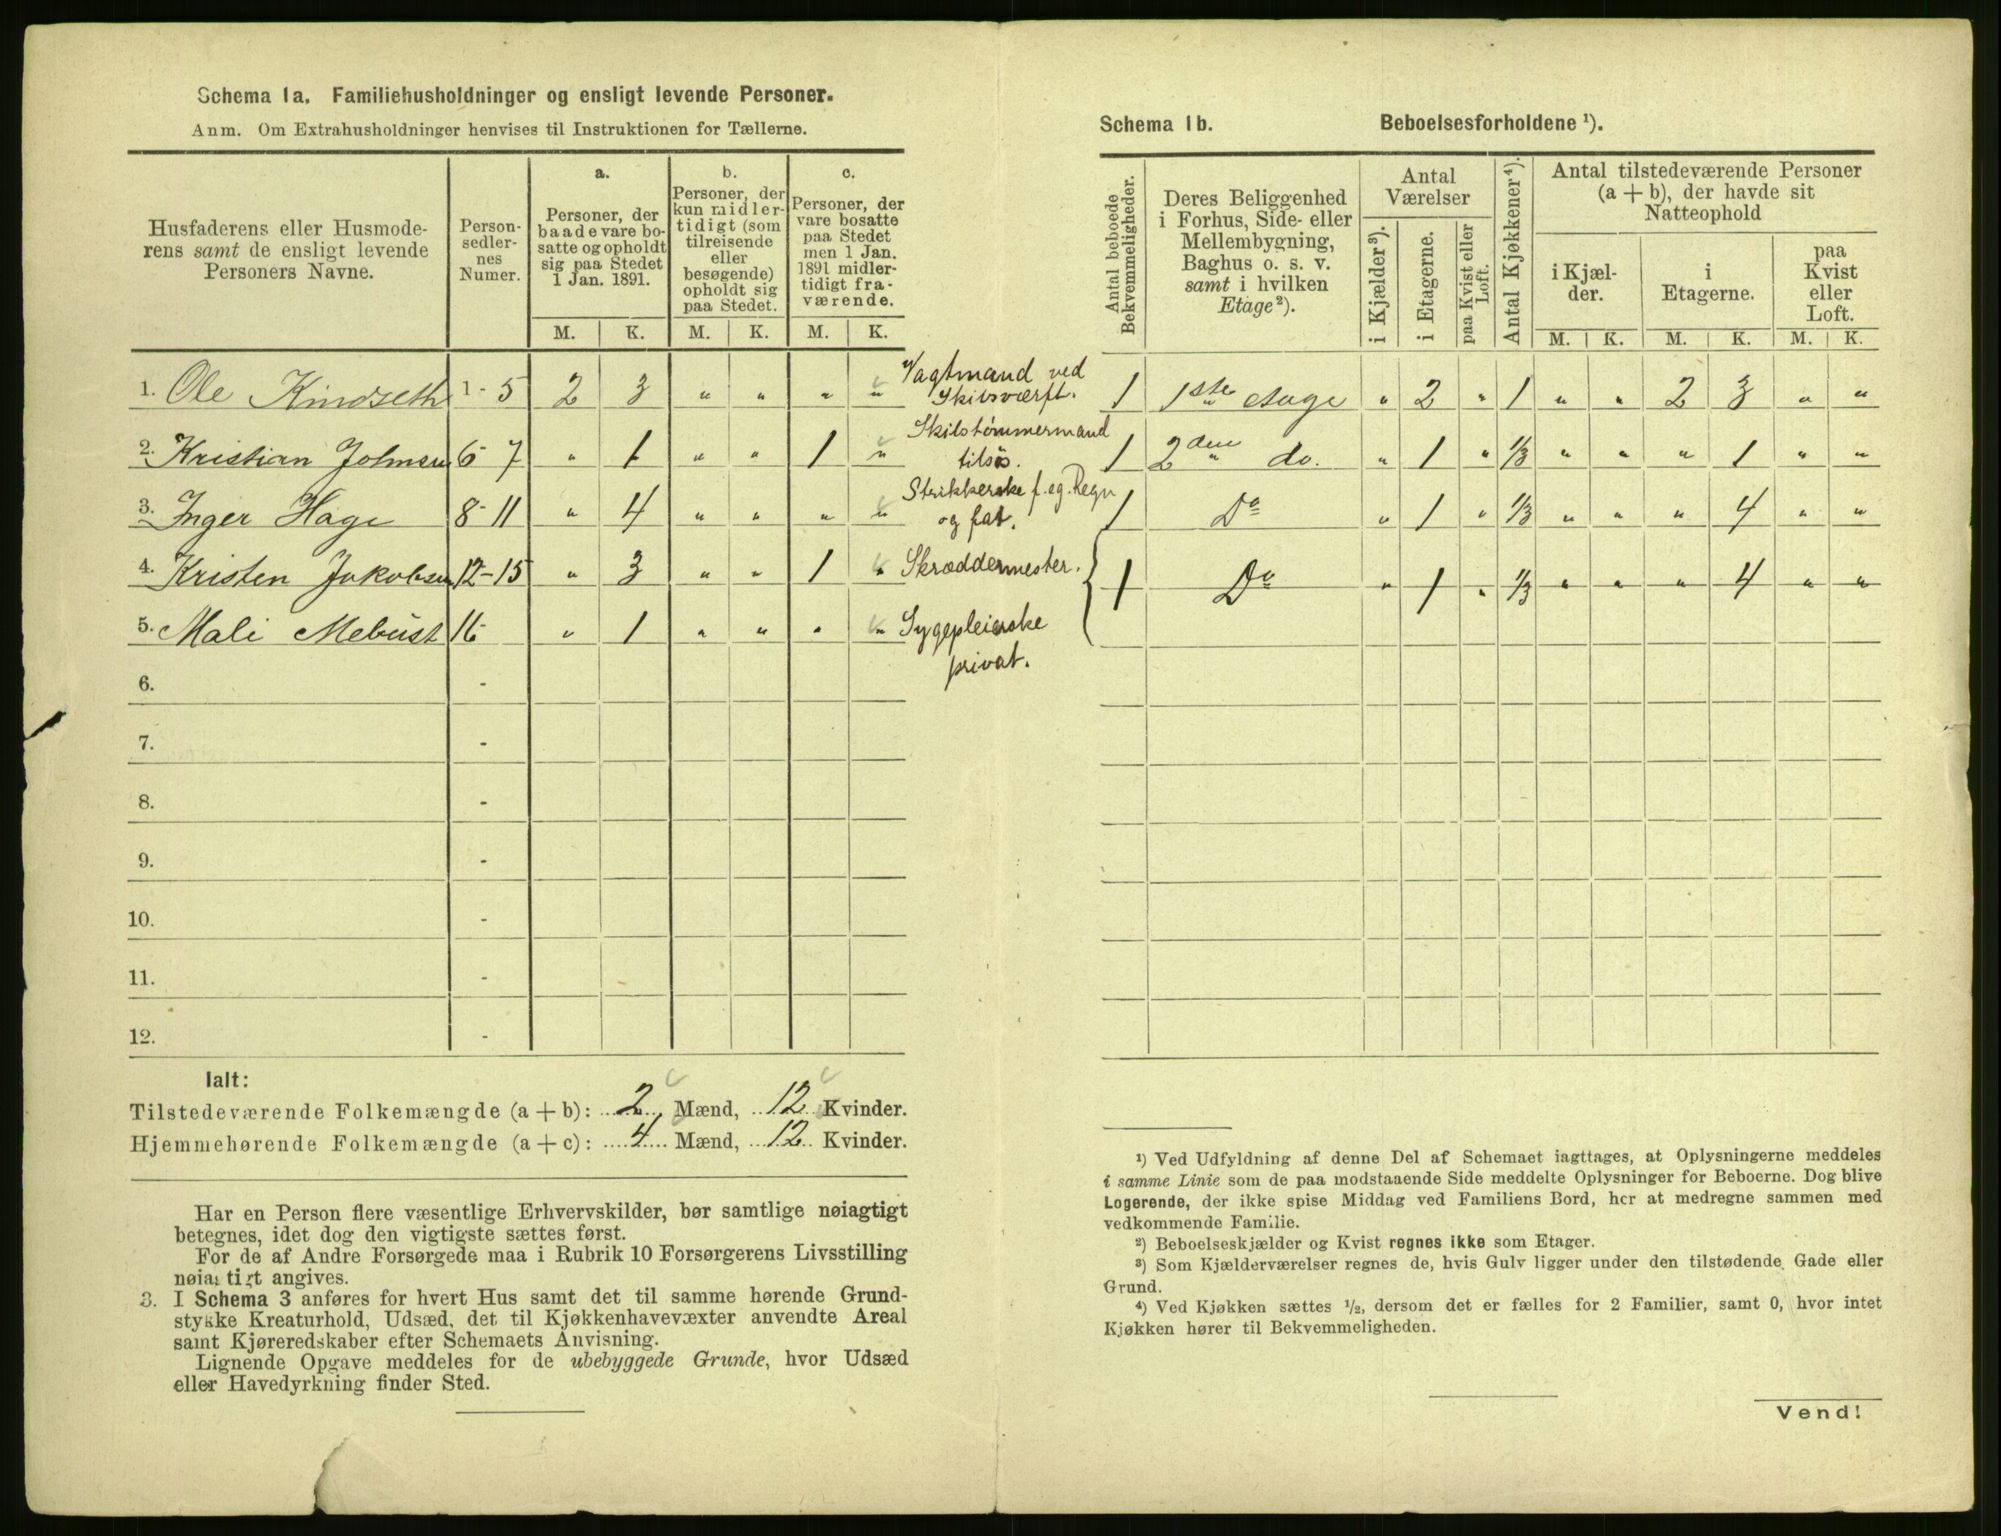 Schema 1a. Familiehusholdninger og ensligt levende Personer.
Anm. Om Extrahusholdninger henvises til Instruktionen for Tællerne.
Husfaderens eller Husmode-
rens samt de ensligt levende
Personers Navne.
Person-
sedler-
nes
Numer.
a.
Personer, der
baade vare bo-
satte og opholdt
sig paa Stedet
1 Jan. 1891.
b.
Personer, der
kun midler-
tidigt (som
tilreisende
eller
besøgende)
opholdt sig
paa Stedet.
c.
Personer, der
vare bosatte
paa Stedet
men 1 Jan.
1891 midler-
tidigt fra-
værende.
M. K. M. K. M. K.
1. Ole Kindseth 1 - 5 2 3 " " " " Vagtmand ved
Skibsværft.
2. Kristian Johnsen 6 - 7 " 1 " " 1 " Skibstømmermand
tilsøs.
3. Inger Hage 8 - 11 " 4 " " " " Strikkerske f. eg. Regn
og fat.
4. Kristen Jakobsen 12 - 15 " 3 " " 1 " Skræddermester.
5. Mali Mebust 16 - " 1 " " " " Sygepleierske
privat.
6. -
7. -
8. -
9. -
10. -
11. -
12. -
Ialt:
Tilstedeværende Folkemængde (a + b): 2 Mænd, 12 Kvinder.
Hjemmehørende Folkemængde (a + c): 4 Mænd, 12 Kvinder.
Har en Person flere væsentlige Erhvervskilder, bør samtlige nøiagtigt
betegnes, idet dog den vigtigste sættes først.
For de af Andre Forsørgede maa i Rubrik 10 Forsørgerens Livsstilling
nøiagtigt angives.
3. I Schema 3 anføres for hvert Hus samt det til samme hørende Grund-
stykke Kreaturhold, Udsæd, det til Kjøkkenhavevæxter anvendte Areal
samt Kjøreredskaber efter Schemaets Anvisning.
Lignende Opgave meddeles for de ubebyggede Grunde, hvor Udsæd
eller Havedyrkning finder Sted.
Schema 1b. Beboelsesforholdene ¹).
Antal beboede
Bekvemmeligheder.
Deres Beliggenhed
i Forhus, Side- eller
Mellembygning,
Baghus o. s. v.
samt i hvilken
Etage²).
Antal
Værelser
i Kjælder³).
i Etagerne.
paa Kvist eller
Loft.
Antal Kjøkkener⁴).
Antal tilstedeværende Personer
(a + b), der havde sit
Natteophold
i Kjæl-
der.
i
Etagerne.
paa
Kvist
eller
Loft.
M. K. M. K. M. K.
1 1ste Etage " 2 " 1 " " 2 3 " "
1 2den do. " 1 " 1/3 " " " 1 " "
1 Do " 1 " 1/3 " " " 4 " "
1 Do " 1 " 1/3 " " " 4 " "
¹) Ved Udfyldning af denne Del af Schemaet iagttages, at Oplysningerne meddeles
i samme Linie som de paa modstaaende Side meddelte Oplysninger for Beboerne. Dog blive
Logerende, der ikke spise Middag ved Familiens Bord, her at medregne sammen med
vedkommende Familie.
²) Beboelseskjælder og Kvist regnes ikke som Etager.
³) Som Kjælderværelser regnes de, hvis Gulv ligger under den tilstødende Gade eller
Grund.
⁴) Ved Kjøkken sættes ½, dersom det er fælles for 2 Familier, samt 0, hvor intet
Kjøkken hører til Bekvemmeligheden.
Vend!